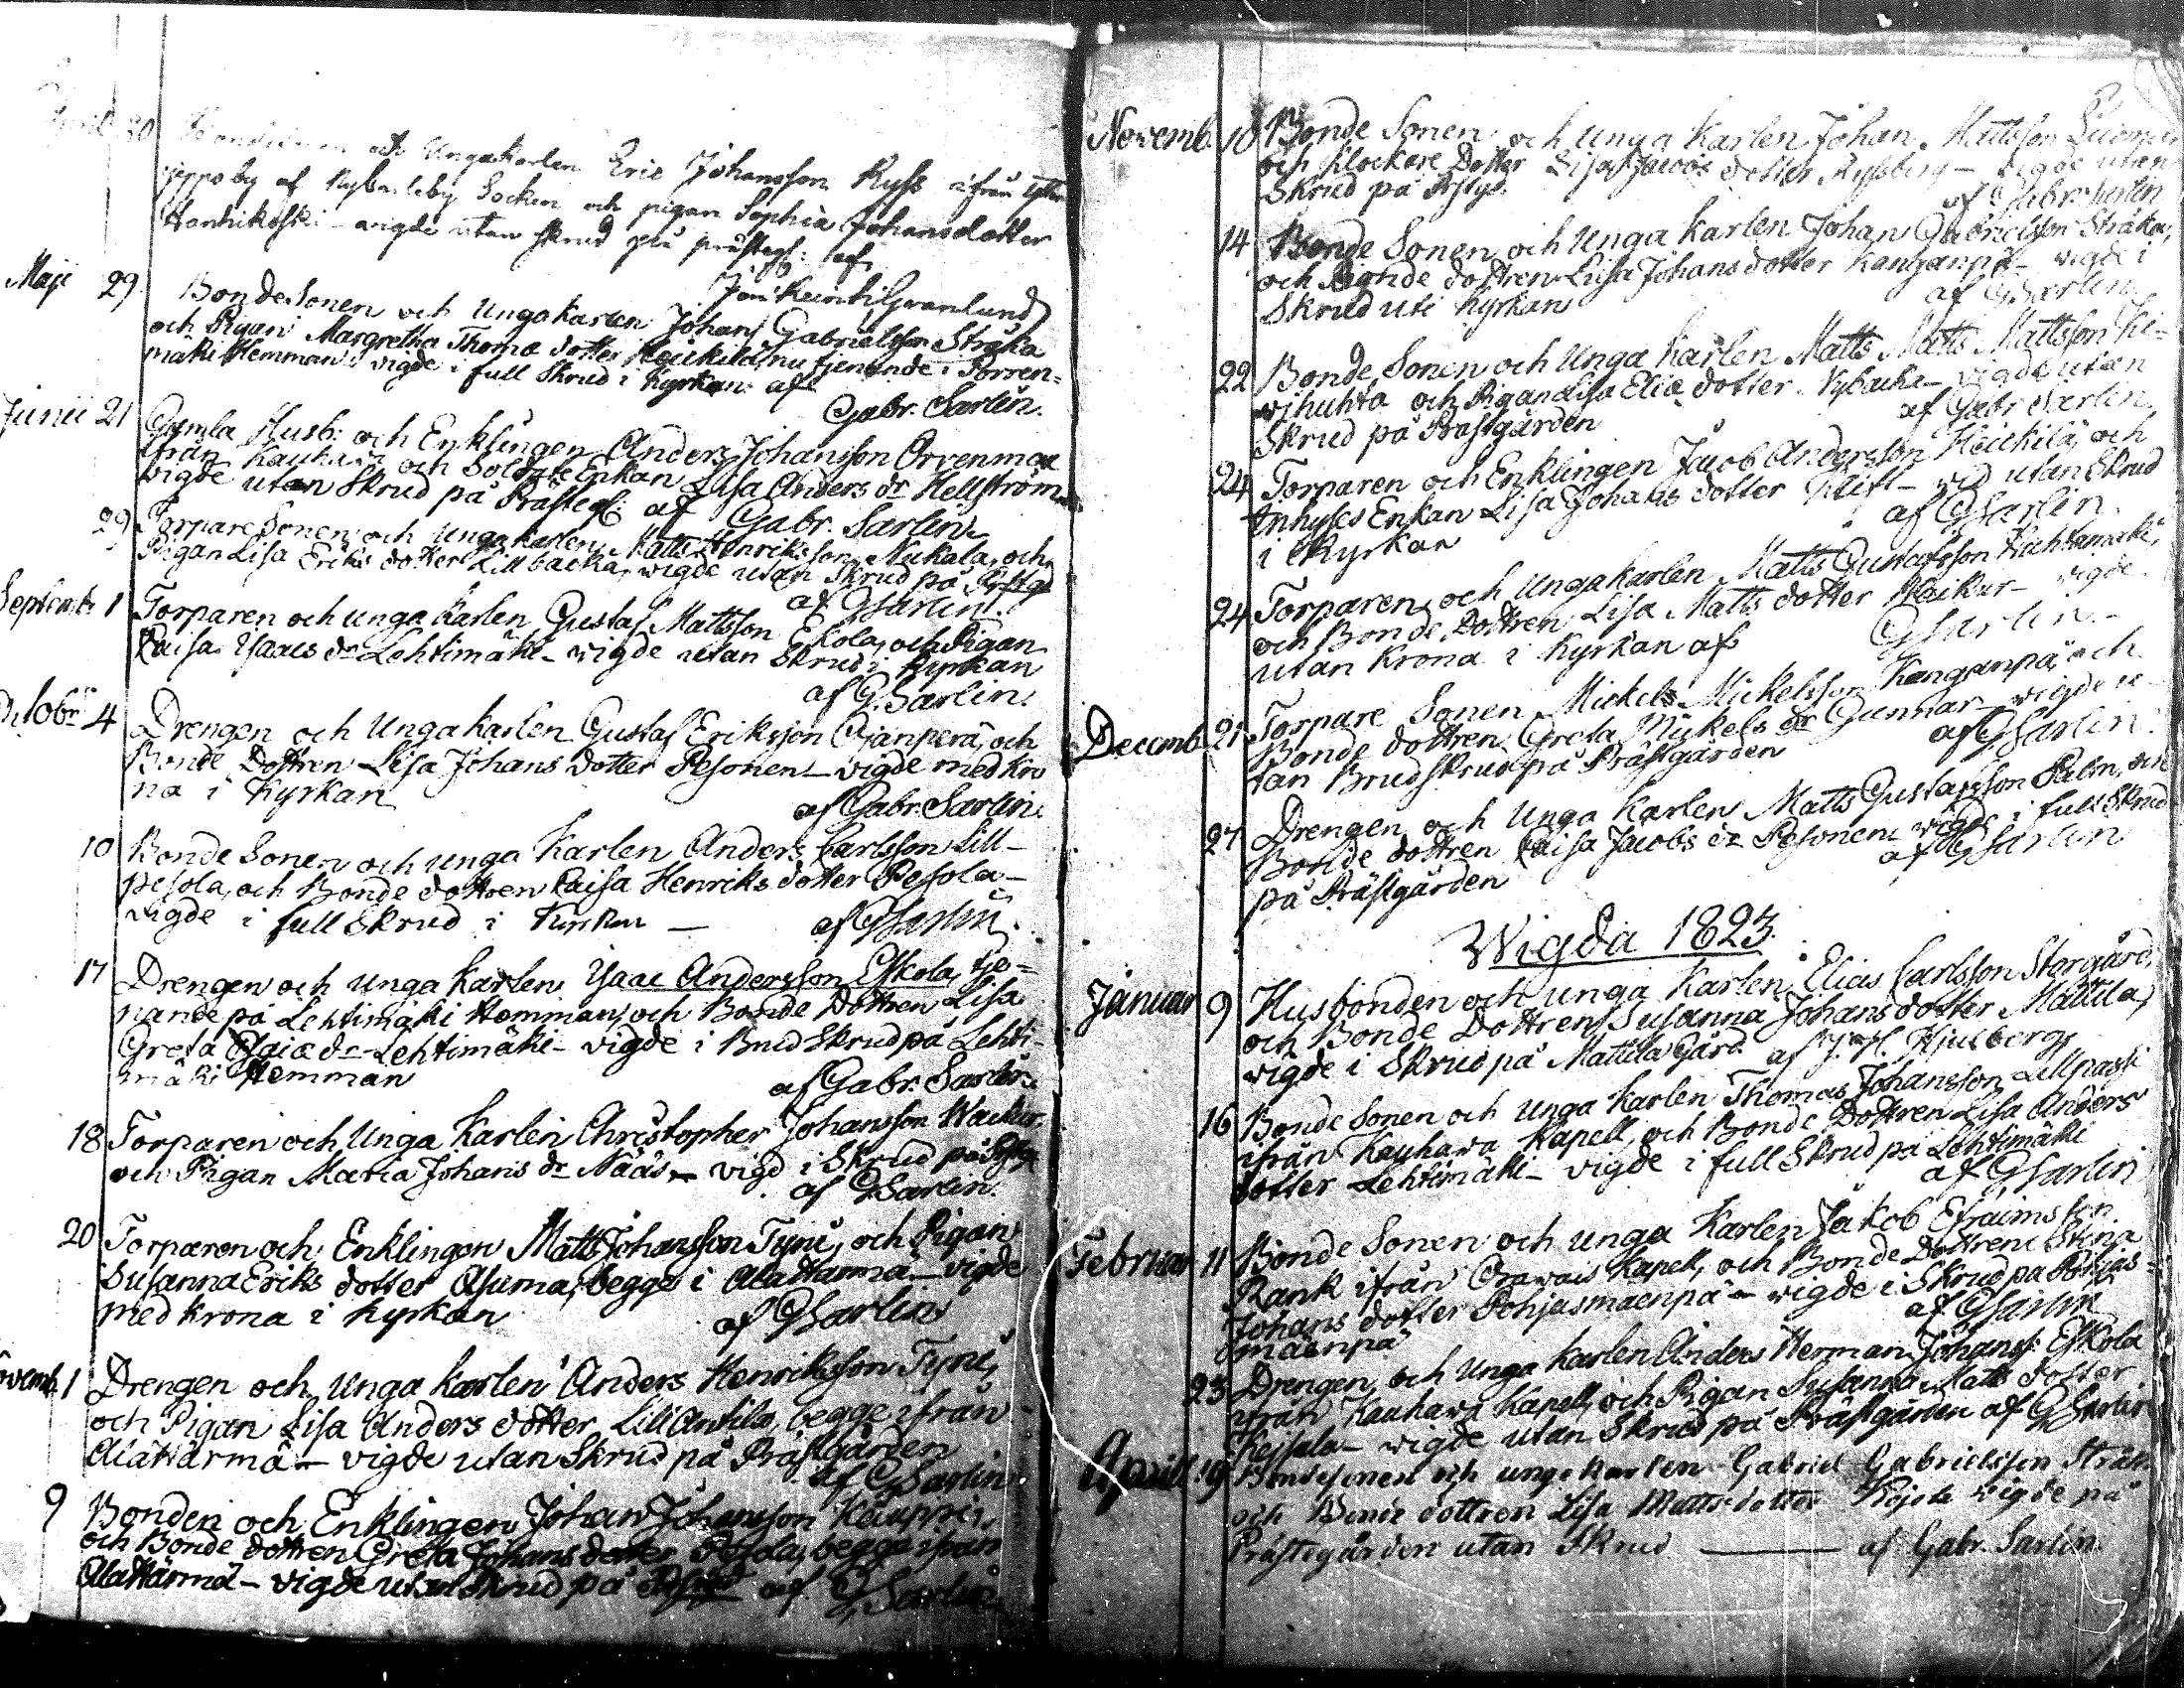 30 och Ungakarlen Eric Johansson Ryss ifrån
jeppo by af Nykarleby Socken och pigan Sophia Johansdotter
Hanhikoski - vigde utan skrud på prästeg: af
Granlund
Maji 29 Bonde Sonen och Ungakarlen Johan Gabrielsson Stråka
och Pigan Margretha Thomæ dotter Heickilä, nu tjenande i Torren=
mäki Hemman - vigde i full Skrud i Kyrkan af
Gabr. Sarlin.
Junii 21 Gamla Husb: och Enklingen Anders Johansson Orrenmaa
ifrån Kauhava och Soldate Enkan Lisa Anders dr Hellström
vigde utan Skrud på Prästeg: af Gabr. Sarlin
29 Torpare Sonen och Ungakarlen Matts Henriksson Nukala, och
Pigan Lisa Eriks dotter Lillbacka, vigde utan Skrud på Prstgd
af GSarlin.
Septemb 1 Torparen och unga karlen Gustaf Mattsson Eskola, och Pigan
Caisa Isaacs dr Lehtimäki - vigde utan Skrud i Kyrkan
af G.Sarlin.
Octobr 4 Drengen och Ungakarlen Gustaf Eriksson Ojanperä, och
Bonde Dottren Lisa Johans dotter Pesonen - vigde med kro
na i Kyrkan
af Gabr. Sarlin.
10 Bonde Sonen och unga Karlen Anders Carlsson Lill-
pesola, och Bonde dottren Caisa Henriks dotter Pesola -
vigde i full Skrud i Kyrkan — af GSarlin.
17 Drengen och unga karlen Ysaac Andersson Eskola, tje=
nande på Lehtimäki Hemman, och Bonde Dottren Lisa
Greta dr Lehtimäki - vigde i Brud Skrud på Lehti-
mäki Hemman
af Gabr. Sarlin.
18 Torparen och Unga Karlen Christopher Johansson Wackur,
och Pigan Maria Johans dr Nääs - vigd i Skrud på
af GSarlin.
20 Torparen och Enklingen Matts Johansson Tyni, och Pigan
Susanna Eriks dotter Asuma, begge i Alahärmä - vigde
med krona i Kyrkan
af GSarlin
Novemb. 1 Drengen och Unga karlen Anders Henriksson Tyni,
och Pigan Lisa Anders dotter Lill Antila, begge ifrån
Alahärmä - vigde utan Skrud på Prästgården
af GSarlin
9 Bonden och Enklingen Johan Johansson Kauppi,
och Bonde dottren Greta Johans dotter Pesola, begge ifrån
Alahärmä - vigde utan Skrud på af G,Sarlin.
Novemb. 10 Bonde Sonen och Unga Karlen Johan Mattsson
och Klockare Dotter Lisa Jacobs dotter - vigde utan
Skrud på Prstgd.
af Gabr. Sarlin
14 Bonde Sonen och Unga karlen Johan Gabrielsson Stråka,
och Bonde dottren Lisa Johans dotter Kanganpä - vigde i
Skrud uti Kyrkan
af GSarlin.
22 Bonde Sonen och Unga Karlen Matts Matts Mattsson Ki-
wjhuhta och Pigan Lisa Eliæ dotter Nybacka - vigde utan
Skrud på Prästgården
af Gabr Sarlin,
24 Torparen och Enklingen Jacob Andersson Heickilä, och
Inhyses Enkan Lisa Johans dotter - vid utan Skrud
i Kyrkan
af GSarlin.
24 Torparen och Ungakarlen Matts Gustafsson Huhtamäki,
och Bonde Dottren Lisa Matts dotter - vigde
utan Krona i Kyrkan af GSarlin.
Decemb. 21 Torpare Sonen Mickel Mickelsson Kanganpä, och
Bonde dottren Greta Mickels dr Gunnar - vigde u-
tan Brudskrud på Prästgården
af GSarlin.
27 Drengen och Unga Karlen Matts Gustafsson Palon, och
Bonde dottren Caisa Jacobs dr Pesonen - vigde i full Skrud
på Prästgården
af GSarlin
Wigda 1823.
Januar 9 Husbonden och unga Karlen Elias Carlsson Storgård,
och Bonde Dottren Susanna Johans dotter Mattila,
vigde i Skrud på Mattila Gård af Hjulberg
16 Bonde Sonen och Unga karlen Thomas Johansson Lillpassi
ifrån Kauhava Kapell, och Bonde Dottren Lisa Anders
dotter Lehtimäki - vigde i full Skrud på Lehtimäki
af GSarlin
Februar 11 Bonde Sonen och unga Karlen Jakob Efraimsson
Rank ifrån Orawais Kapell, och Bonde Dottren Stina
Johans dotter Pohjasmaenpä - vigde i Skrud på Pohjas=
maenpä
af GSarlin
23 Drengen och Unga karlen Anders Herman Johanss: Eskola
ifrån Kauhava Kapell, och Pigan Susanna Matts dotter
Keisala - vigde utan Skrud på Prästgården af GSarlin
Aprill 19 Bondesonen och ungekarlen Gabriel Gabrielsson Stråka
och Bonde dottren Lisa Mattsdotter vigde på
Prästegården utan Skrud — af Gabr. Sarlin.